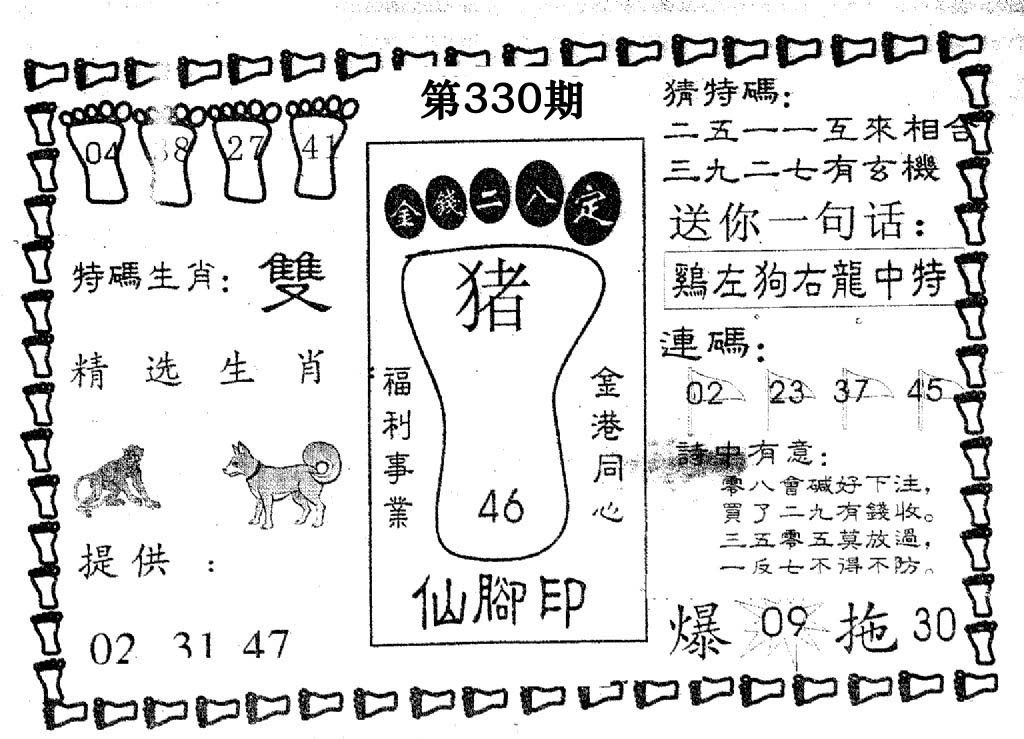 第330期
04 38 27 41
特碼生肖：雙
精选生肖
提供：
02 31 47
金錢二八定
猪
福利事業
金港同心
46
仙腳印
猜特碼：
二五一一互來相合
三九二七有玄機
送你一句话：
鷄左狗右龍中特
連碼：
02 23 37 45
詩中有意：
零八會碱好下注，
買了二九有錢收。
三五零五莫放過，
一反七不得不防。
爆 09 拖 30